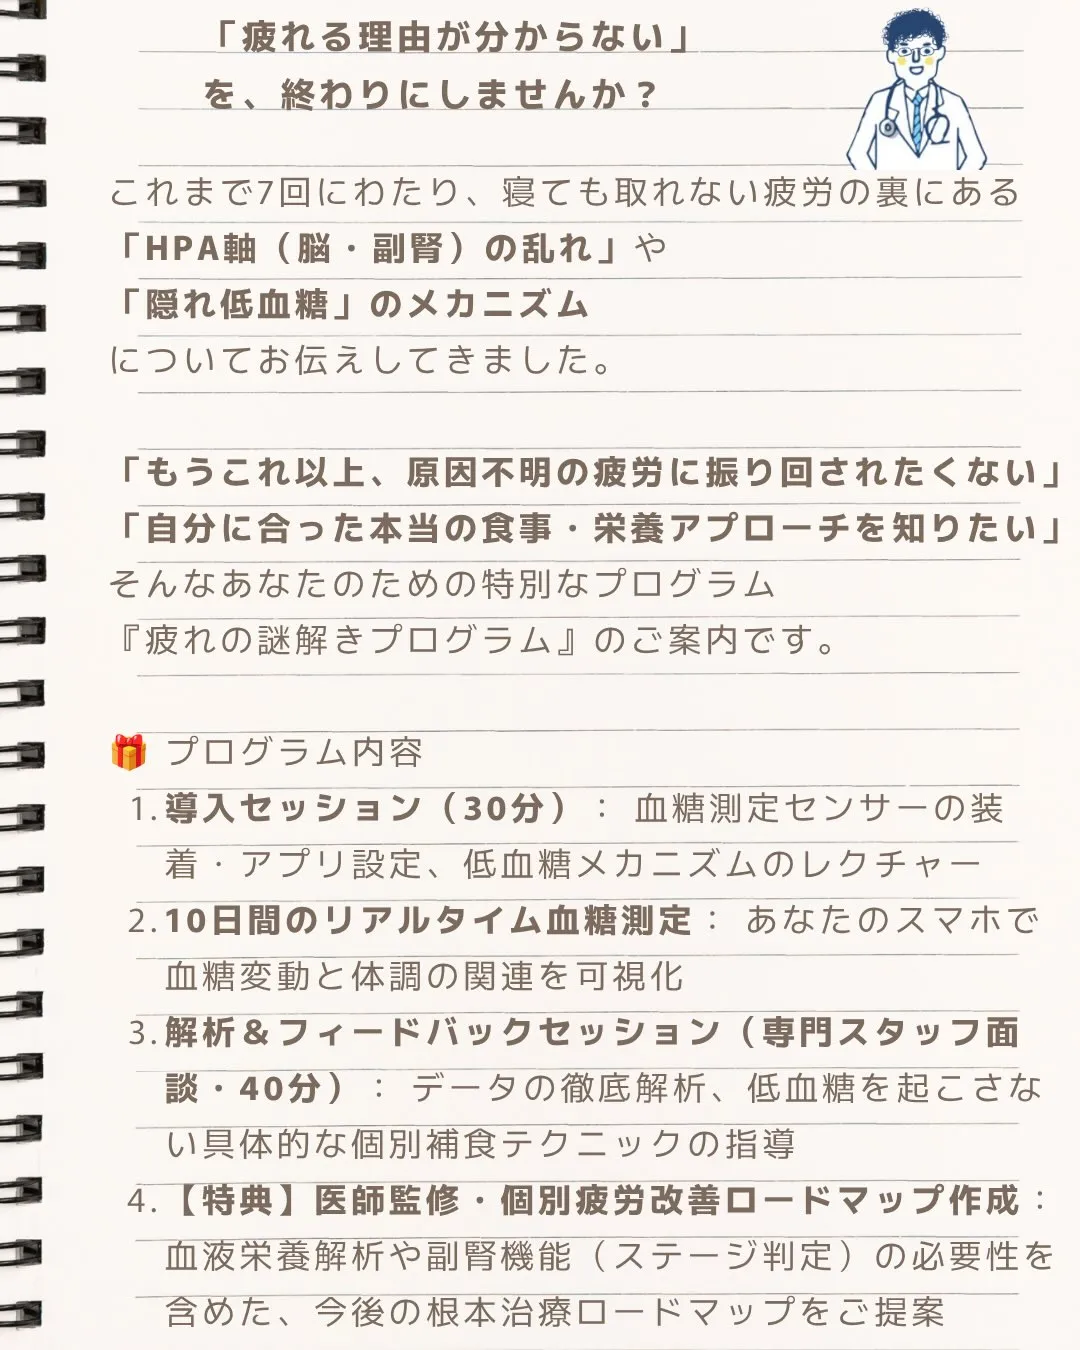 「疲れる理由が分からない」
を、終わりにしませんか？
これまで7回にわたり、寝ても取れない疲労の裏にある
「HPA軸（脳・副腎）の乱れ」や
「隠れ低血糖」のメカニズム
についてお伝えしてきました。
「もうこれ以上、原因不明の疲労に振り回されたくない」
「自分に合った本当の食事・栄養アプローチを知りたい」
そんなあなたのための特別なプログラム
『疲れの謎解きプログラム』のご案内です。
🎁 プログラム内容
1. 導入セッション（30分）： 血糖測定センサーの装
着・アプリ設定、低血糖メカニズムのレクチャー
2. 10日間のリアルタイム血糖測定： あなたのスマホで
血糖変動と体調の関連を可視化
3. 解析＆フィードバックセッション（専門スタッフ面
談・40分）： データの徹底解析、低血糖を起こさな
い具体的な個別補食テクニックの指導
4. 【特典】医師監修・個別疲労改善ロードマップ作成：
血液栄養解析や副腎機能（ステージ判定）の必要性を
含めた、今後の根本治療ロードマップをご提案